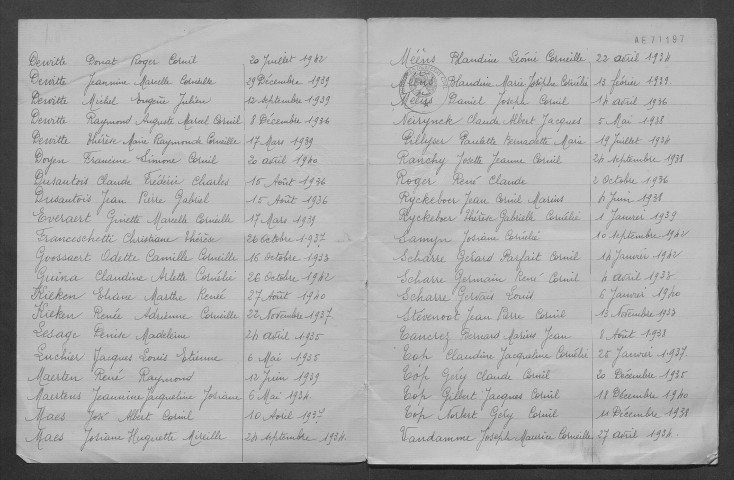 Dewitte Donat Roger Cornil 20 Juillet 1942
Dewitte Jeannine Marcelle Corneille 29 Décembre 1939
Dewitte Michel Eugène Julien 12 septembre 1939
Dewitte Raymond Auguste Marcel Cornil 8 Décembre 1936
Dewitte Thérèse Marie Raymonde Corneille 17 Mars 1939
Doyen Francine Simone Cornil 20 avril 1940
Dusautois Claude Frédéric Charles 15 Août 1936
Dusautois Jean Pierre Gabriel 15 Août 1936
Everaert Ginette Marcelle Corneille 17 Mars 1939
Franceschetti Christiane Thérèse 26 octobre 1937
Goossaert Odette Camille Corneille 16 octobre 1933
Guina Claudine Arlette Cornélie 26 octobre 1942
Kieken Eliane Marthe René 27 Août 1940
Kieken Renée Adrienne Corneille 22 Novembre 1937
Lesage Denise Madeleine 24 avril 1935
Luchier Jacques Louis Etienne 6 Mai 1935
Maerten René Raymond 12 Juin 1939
Maertens Jeannine Jacqueline Josiane 6 Mai 1934
Maes José Albert Cornil 10 Avril 1937
Maes Josiane Huguette Mireille 24 septembre 1934
AE71197
Méens Blandine Léonie Corneille 22 avril 1934
Méens Blandine Marie Josèphe Cornélie 13 février 1939
Méens Daniel Joseph Cornil 14 avril 1936
Neirynck Claude Albert Jacques 5 Mai 1938
Pillyser Paulette Bernadette Marie 19 Juillet 1934
Ranchy Josette Jeanne Cornil 24 septembre 1938
Roger René Claude 2 octobre 1936
Ryckeboer Jean Cornil Marius 4 Juin 1938
Ryckeboer Thérèse Gabrielle Cornélie 1 Janvier 1939
Samyn Josiane Cornélie 10 septembre 1942
Scharre Gérard Parfait Cornil 14 Janvier 1942
Scharre Germain René Cornil 4 avril 1938
Scharre Gervais Louis 6 Janvier 1940
Stevenoot Jean Pierre Cornil 12 Novembre 1933
Tancrez Bernard Marius Jean 8 Août 1938
Top Claudine Jacqueline Cornélie 25 Janvier 1937
Top Gery Claude Cornil 20 Décembre 1935
Top Gilbert Jacques Cornil 18 Décembre 1940
Top Norbert Gery Cornil 11 Décembre 1938
Vandamme Joseph Maurice Corneille 27 avril 1934